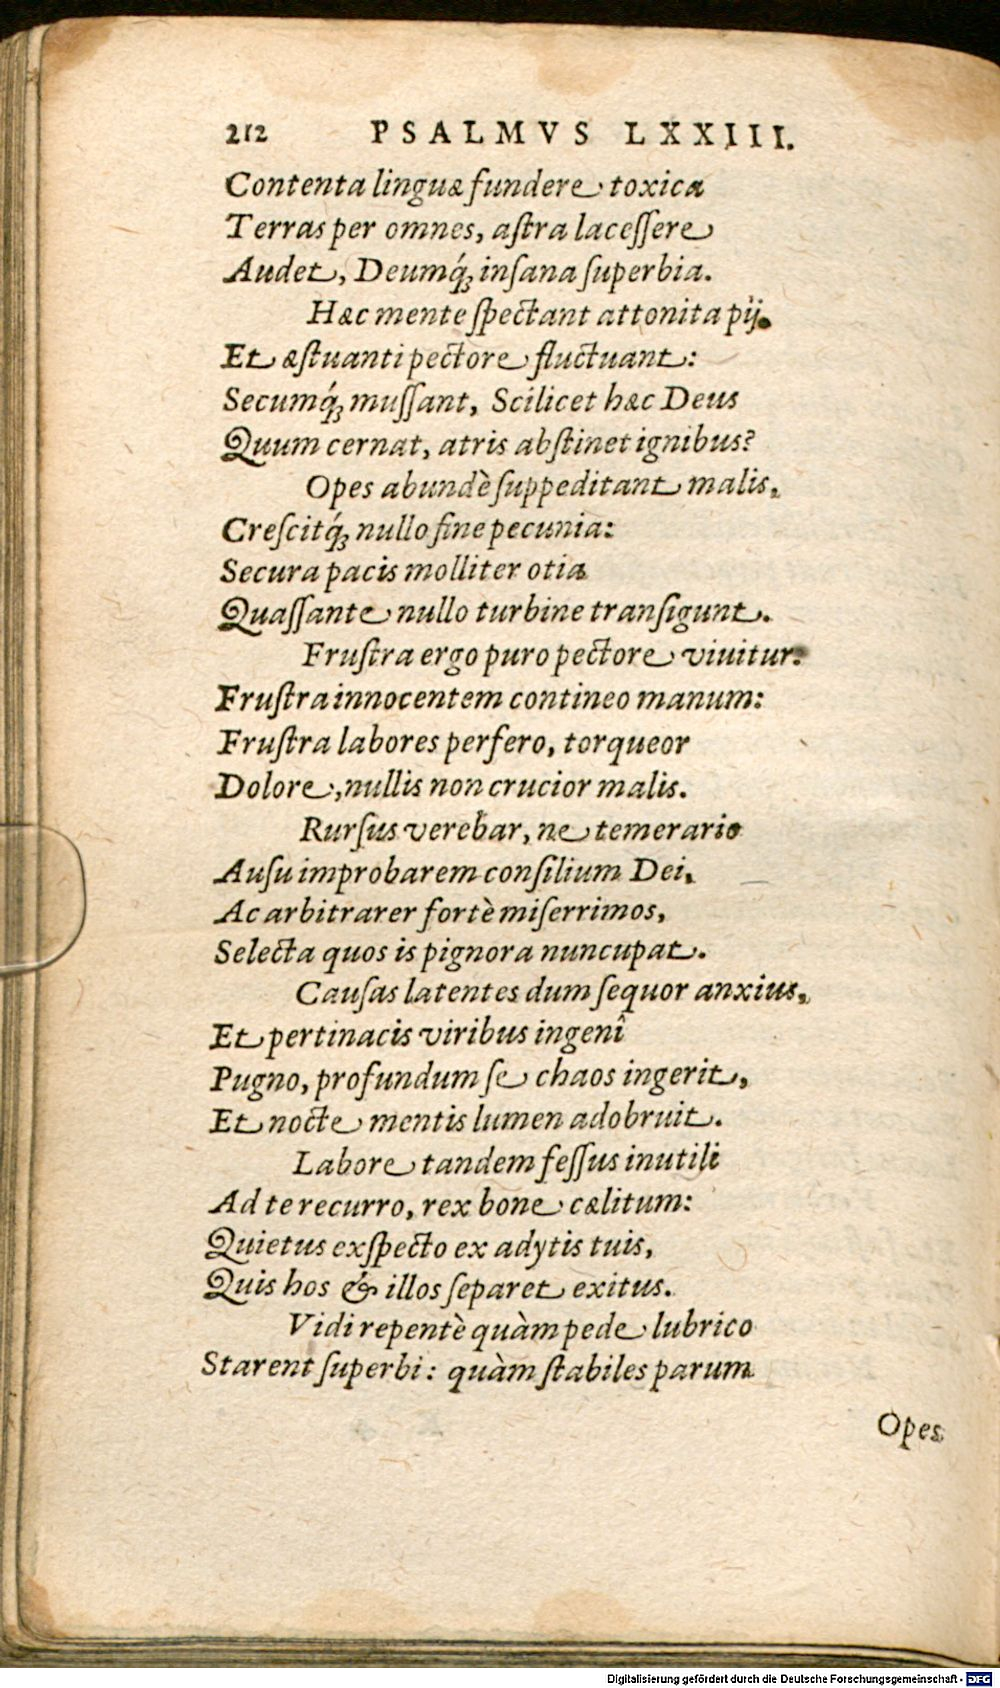 212 PSALMVS LXXIII.
Contenta linguæ fundere toxica
Terras per omnes, aſtra laceſſere
Audet, Deumq́ꝫ inſana ſuperbia.
Hæc mente ſpectant attonita pij.
Et æſtuanti pectore fluctuant:
Secumq́ꝫ muſſant, Scilicet hæc Deus
Quum cernat, atris abſtinet ignibus?
Opes abundè ſuppeditant malis,
Creſcitq́ꝫ nullo fine pecunia:
Secura pacis molliter otia
Quaſſante nullo turbine tranſigunt.
Fruſtra ergo puro pectore viuitur:
Fruſtra innocentem contineo manum:
Fruſtra labores perfero, torqueor
Dolore, nullis non crucior malis.
Rurſus verebar, ne temerario
Auſu improbarem conſilium Dei,
Ac arbitrarer fortè miſerrimos,
Selecta quos is pignora nuncupat.
Cauſas latentes dum ſequor anxius,
Et pertinacis viribus ingenî
Pugno, profundum ſe chaos ingerit,
Et nocte mentis lumen adobruit.
Labore tandem feſſus inutili
Ad te recurro, rex bone cælitum:
Quietus exſpecto ex adytis tuis,
Quis hos & illos ſeparet exitus.
Vidi repentè quàm pede lubrico
Starent ſuperbi: quàm ſtabiles parum
Opes
Digitalisierung gefördert durch die Deutsche Forschungsgemeinschaft - DFG